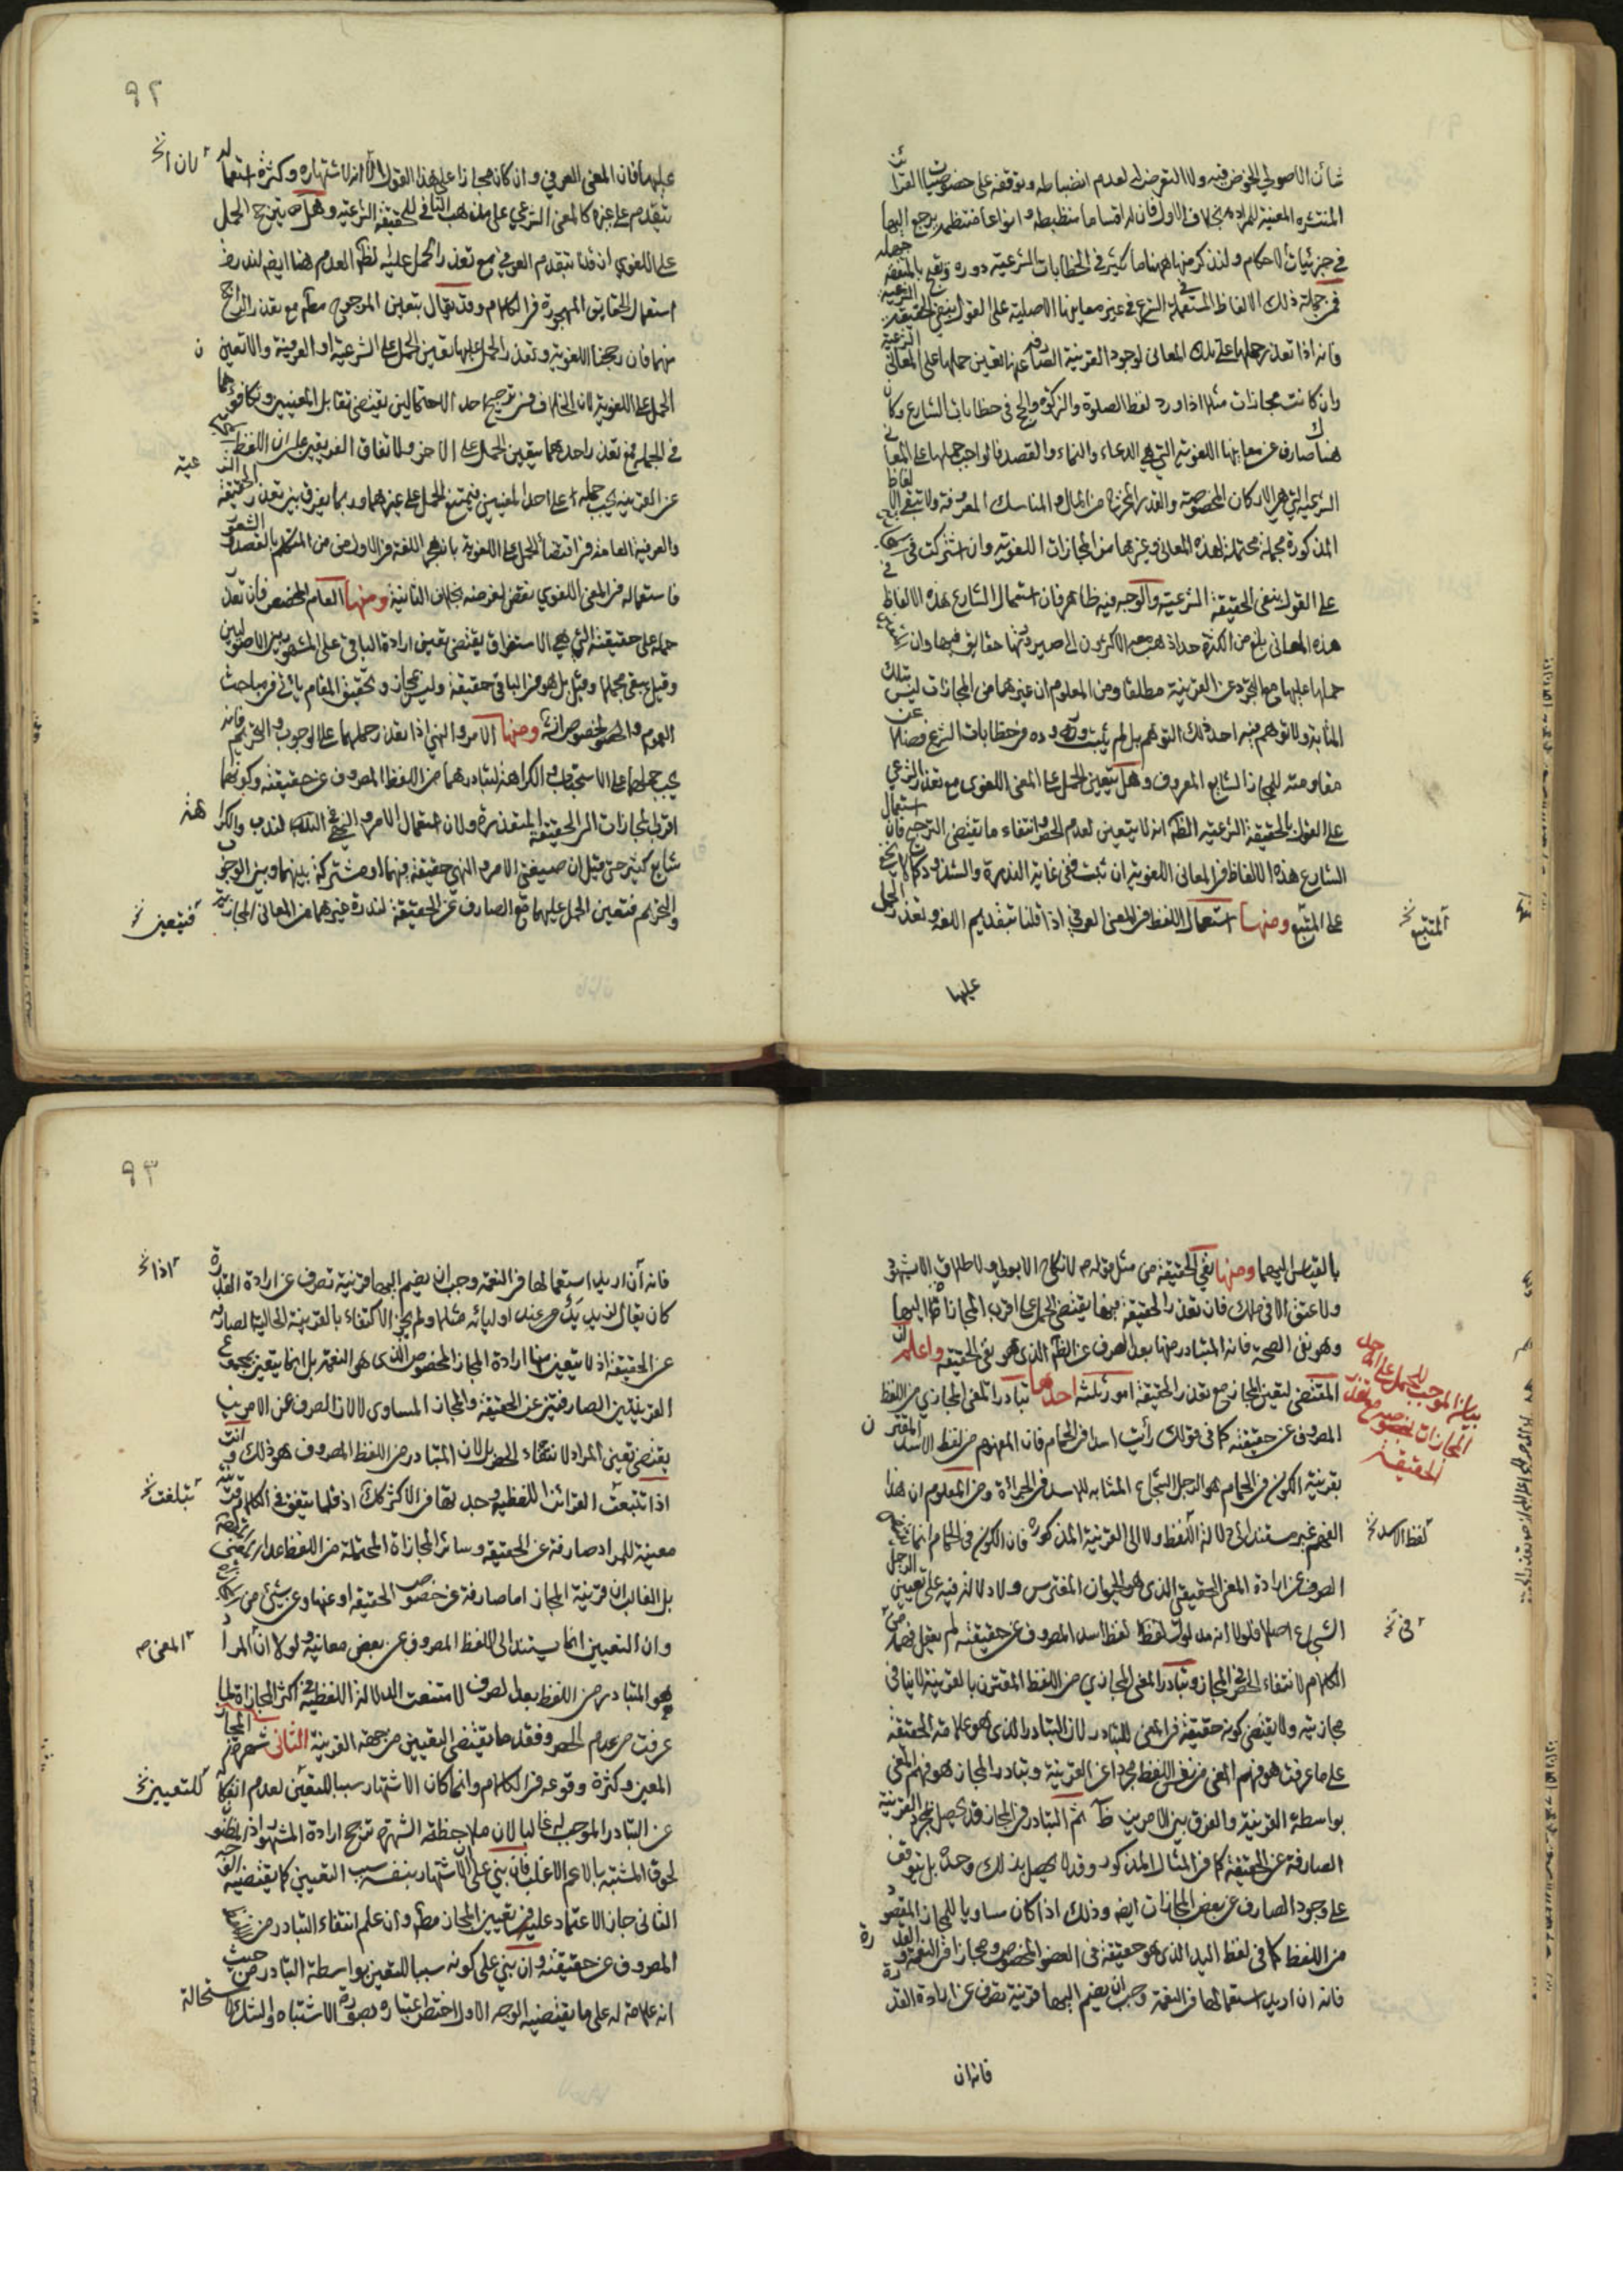 شأن الاصولي الخوض فيه ولا التعرض له لعدم انضباطه وتوقفه على خصوصيات القرائن
المنتشره المعينة للمراد بخلاف الاول فان له اقساما منظبطه وانواعا منتظمه يرجع اليها
في جزئيات الاحكام ولنذكر منها هنا ما كثير في الخطابات الشرعيه دوره
فمن جملة ذلك الالفاظ المستعملة في الشرع في غير معانيها الاصلية على القول بنفي الحقيقة الشرعية
فانه اذا تعذر حملها على تلك المعاني لوجود القرينة الصارفة عنها تعين حملها على المعاني الشرعية
وان كانت مجازات مثلا اذا ورد لفظ الصلوة والزكوة والحج في خطابات الشارع وكان
هناك صارف عن معانيها اللغوية التي هي الدعاء والنماء والقصد فالواجب حملها على المعاني
الشرعية التي هي الاركان المخصوصة والقدر المخرج من المال والمناسك المعروفة ولا تبقى الالفاظ
المذكورة مجملة محتملة لهذه المعاني وغيرها من المجازات اللغوية وان اشتركت في
على القول بنفي الحقيقة الشرعيه والوجه فيه ظاهر فان استعمال الشارع هذه الالفاظ في
هذه المعاني بلغ من الكثرة حدا ذهب معه الاكثرون الى صيرورتها حقايق فيها وان
حملها عليها مع التجرد عن القرينة مطلقا ومن المعلوم ان غيرها من المجازات ليس بتلك
المثابة ولا توهم فيه احد ذلك التوهم بل لم يثبت وروده في خطابات الشرع فضلا عن
مقاومته للمجاز الشايع المعروف وهل يتعين الحمل على المعنى اللغوي مع تعذر الشرعي
على القول بالحقيقة الشرعيه الظ انه لا يتعين لعدم الحصر وانتفاء ما يقتضي الترجيح فان استعمال
الشارع هذه الالفاظ في المعاني اللغوية ان ثبت ففي غاية الندرة والشذوذ كما لا يخفى
على المتتبع ومنها استعمال اللفظ في المعنى العرفي اذا قلنا بتقديم اللغة وتعذر الحمل
المتتبع خ
عليها
٩٢
عليها فان المعنى العرفي وان كان مجازا على هذا القول الا انه لاشتهاره وكثرة استعماله
لان خ
يتقدم على غيره كالمعنى الشرعي على مذهب النافي للحقيقة الشرعيه وهل يترجح الحمل
على اللغوي ان قلنا بتقديم العرفي مع تعذر الحمل عليه الظ العدم هنا ايض لندرة
استعمال الحقايق المهجورة في الكلام وقد يقال بتعين المرجوح مط مع تعذر الراجح
منهما فان رجحنا اللغوية وتعذر الحمل عليها تعين الحمل على الشرعية او العرفية والا تعين
الحمل على اللغوية لان الخلاف في ترجيح احد الاحتمالين يقتضي تقابل المعنيين وتكافؤهما
في الجملة فمع تعذر احدهما يتعين الحمل على الاخر ولاتفاق الفريقين على ان اللفظ
عن القرينة يجب حمله على احد المعنيين فيمتنع الحمل على غيرهما وربما يفرق بين تعذر الحقيقة الشرعيه
والعرفية العامة في اقتضاء الحمل على اللغوية بان هجر اللغة في الاول من المتكلم بالقصد والشعور
فاستعماله في المعنى اللغوي نقض لغرضه بخلاف الثانية ومنها العام المخصص فان تعذر
حمله على حقيقته التي هي الاستغراق يقتضي تعين ارادة الباقي على المشهور بين الاصوليين
وقيل يبقى مجملا وقيل بل هو في الباقي حقيقة وليس بمجاز وتحقيق المقام ياتي في مباحث
العموم والخصوص ان شاء الله ومنها الامر والنهي اذا تعذر حملهما على الوجوب والتحريم فانه
يجب حملهما على الاستحباب والكراهة لتبادرهما من اللفظ المصروف عن حقيقته وكونهما
اقرب المجازات الى الحقيقة المتعذرة ولان استعمال الامر والنهي في الندب والكراهة
شايع كثير حتى قيل ان صيغتي الامر والنهي حقيقة فيهما او مشتركة بينهما وبين الوجوب
والتحريم فتعين الحمل عليهما مع الصارف عن الحقيقة لندرة غيرهما من المعاني المجازية
فيتعين خ
بالقياس اليهما ومنها نفي الحقيقة من مثل قوله ص لا نكاح الا بولي ولا طلاق الا بشهود
ولا عتق الا في ملك فان تعذر الحقيقة فيها يقتضي الحمل على اقرب المجازات اليها
وهو نفي الصحة فانه المتبادر منها بعد الصرف عن الظ الذي هو نفي الحقيقة واعلم ان
المقتضي لتعين المجاز مع تعذر الحقيقة امور ثلثة احدها تبادر المعنى المجازي من اللفظ
بيان الموجب للحمل على احد المجازات بخصوصه مع تعذر الحقيقة
المصروف عن حقيقته كما في قولك رأيت اسدا في الحمام فان المفهوم من لفظ الاسد المقترن
بقرينة الكون في الحمام هو الرجل الشجاع المشابه للاسد في الجرأة ومن المعلوم ان هذا
الفهم غير مستند الى دلالة اللفظ ولا الى القرينة المذكورة فان الكون في الحمام انما
لفظ الاسد خ
الصرف عن ارادة المعنى الحقيقي الذي هو الحيوان المفترس ولا دلالة فيه على تعيين الرجل
الشجاع اصلا فلولا انه مدلول لفظ اسد المصروف عن حقيقته لم يعقل فهمه من
في خ
الكلام لانتفاء الحصر في المجاز وتبادر المعنى المجازي من اللفظ المقترن بالقرينة لا ينافي
مجازيته ولا يقتضي كونه حقيقة في المعنى المتبادر لان التبادر الذي هو علامة الحقيقة
على ما عرفت هو فهم المعنى من نفس اللفظ مجردا عن القرينة وتبادر المجاز هو فهم المعنى
بواسطة القرينة والفرق بين الامرين ظ ثم التبادر في المجاز قد يحصل بمجرد القرينة
الصارفة عن الحقيقة كما في المثال المذكور وقد لا يحصل بذلك وحده بل يتوقف
على وجود الصارف عن بعض المجازات ايض وذلك اذا كان مساويا للمجاز المقصود
من اللفظ كما في لفظ اليد الذي هو حقيقة في العضو المخصوص ومجاز في النعمة والقدرة
فانه ان اريد استعمالها في النعمة وجب ان يضم اليها قرينة تصرف عن ارادة القدرة
فانه ان
٩٣
فانه ان اريد استعمالها في النعمة وجب ان يضم اليها قرينة تصرف عن ارادة القدرة
اذا خ
كان يقال لزيد يد عند اوليائه مثلا ولم يجز الاكتفاء بالقرينة الحالية الصارفة
عن الحقيقة اذ لا يتعين منها ارادة المجاز المخصوص الذي هو النعمة بل انما يتعين بمجموع
القرينتين الصارفتين عن الحقيقة والمجاز المساوي لا لان الصرف عن الامرين
يقتضي تعين المراد لانتفاء الحصر بل لان المتبادر من اللفظ المصروف هو ذلك وانت
اذا تتبعت القرائن اللفظية وجدتها في الاكثر كذلك اذ قلما يتفق في الكلام قرينة
معينة للمراد صارفة عن الحقيقه وسائر المجازات المحتملة من اللفظ عدا
بل الغالب ان قرينة المجاز اما صارفة عن خصوص الحقيقه او عنها وعن شيئ من
وان التعيين انما يستند الى اللفظ المصروف عن بعض معانيه ولولا ان المراد
المعنى ص
هو المتبادر من اللفظ بعد الصرف لامتنعت الدلالة اللفظية في اكثر المجازات لما
عرفت من عدم الحصر وفقد ما يقتضي التعيين من جهة القرينة الثاني شهرة المجاز
المعين وكثرة وقوعه في الكلام وانما كان الاشتهار سببا للتعين لعدم انفكاكه
للتعيين خ
عن التبادر الموجب له غالبا لان ملاحظة الشهرة ترجح ارادة المشهور
لحوق المشتبه بالاعم الاغلب فان بني على ان الاشتهار بنفسه سبب التعيين كما يقتضيه الوجه
الثاني جاز الاعتماد عليه في تعيين المجاز مط وان علم انتفاء التبادر من
المصروف عن حقيقته وان بني على كونه سببا للتعين بواسطة التبادر من حيث
انه علامة له على ما يقتضيه الوجه الاول اختص اعتباره بصورة الاشتباه والشك لاستحالة